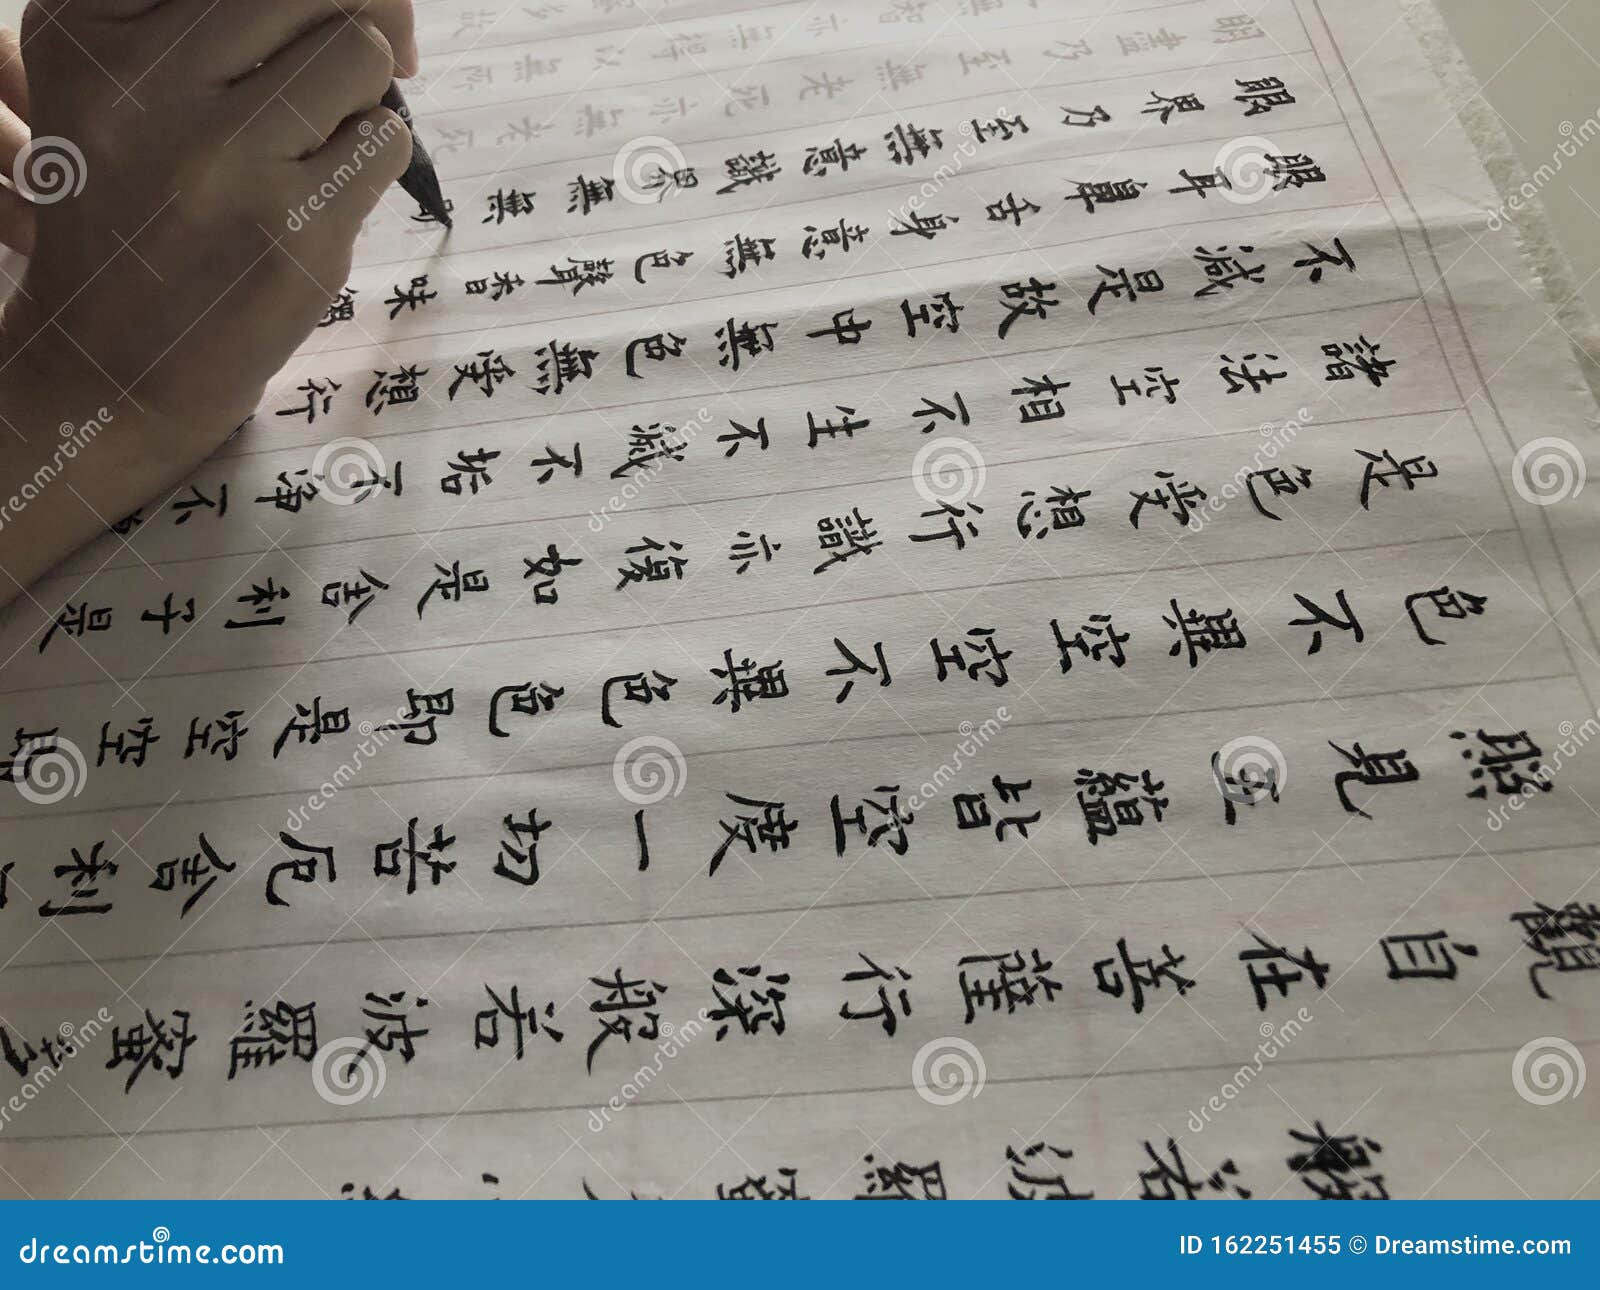 般若波羅蜜
觀自在菩薩行深般若波羅蜜多
照見五蘊皆空度一切苦厄舍利
色不異空空不異色色即是空空即
是色受想行識亦復如是舍利子是
諸法空相不生不滅不垢不淨不增
不減是故空中無色無受想行
眼耳鼻舌身意無色聲香味觸
眼界乃至無意識界無無明
盡乃至無老死亦無老死
無智亦無得以無所得
多故
dreamstime.com
ID 162251455 © Dreamstime.com